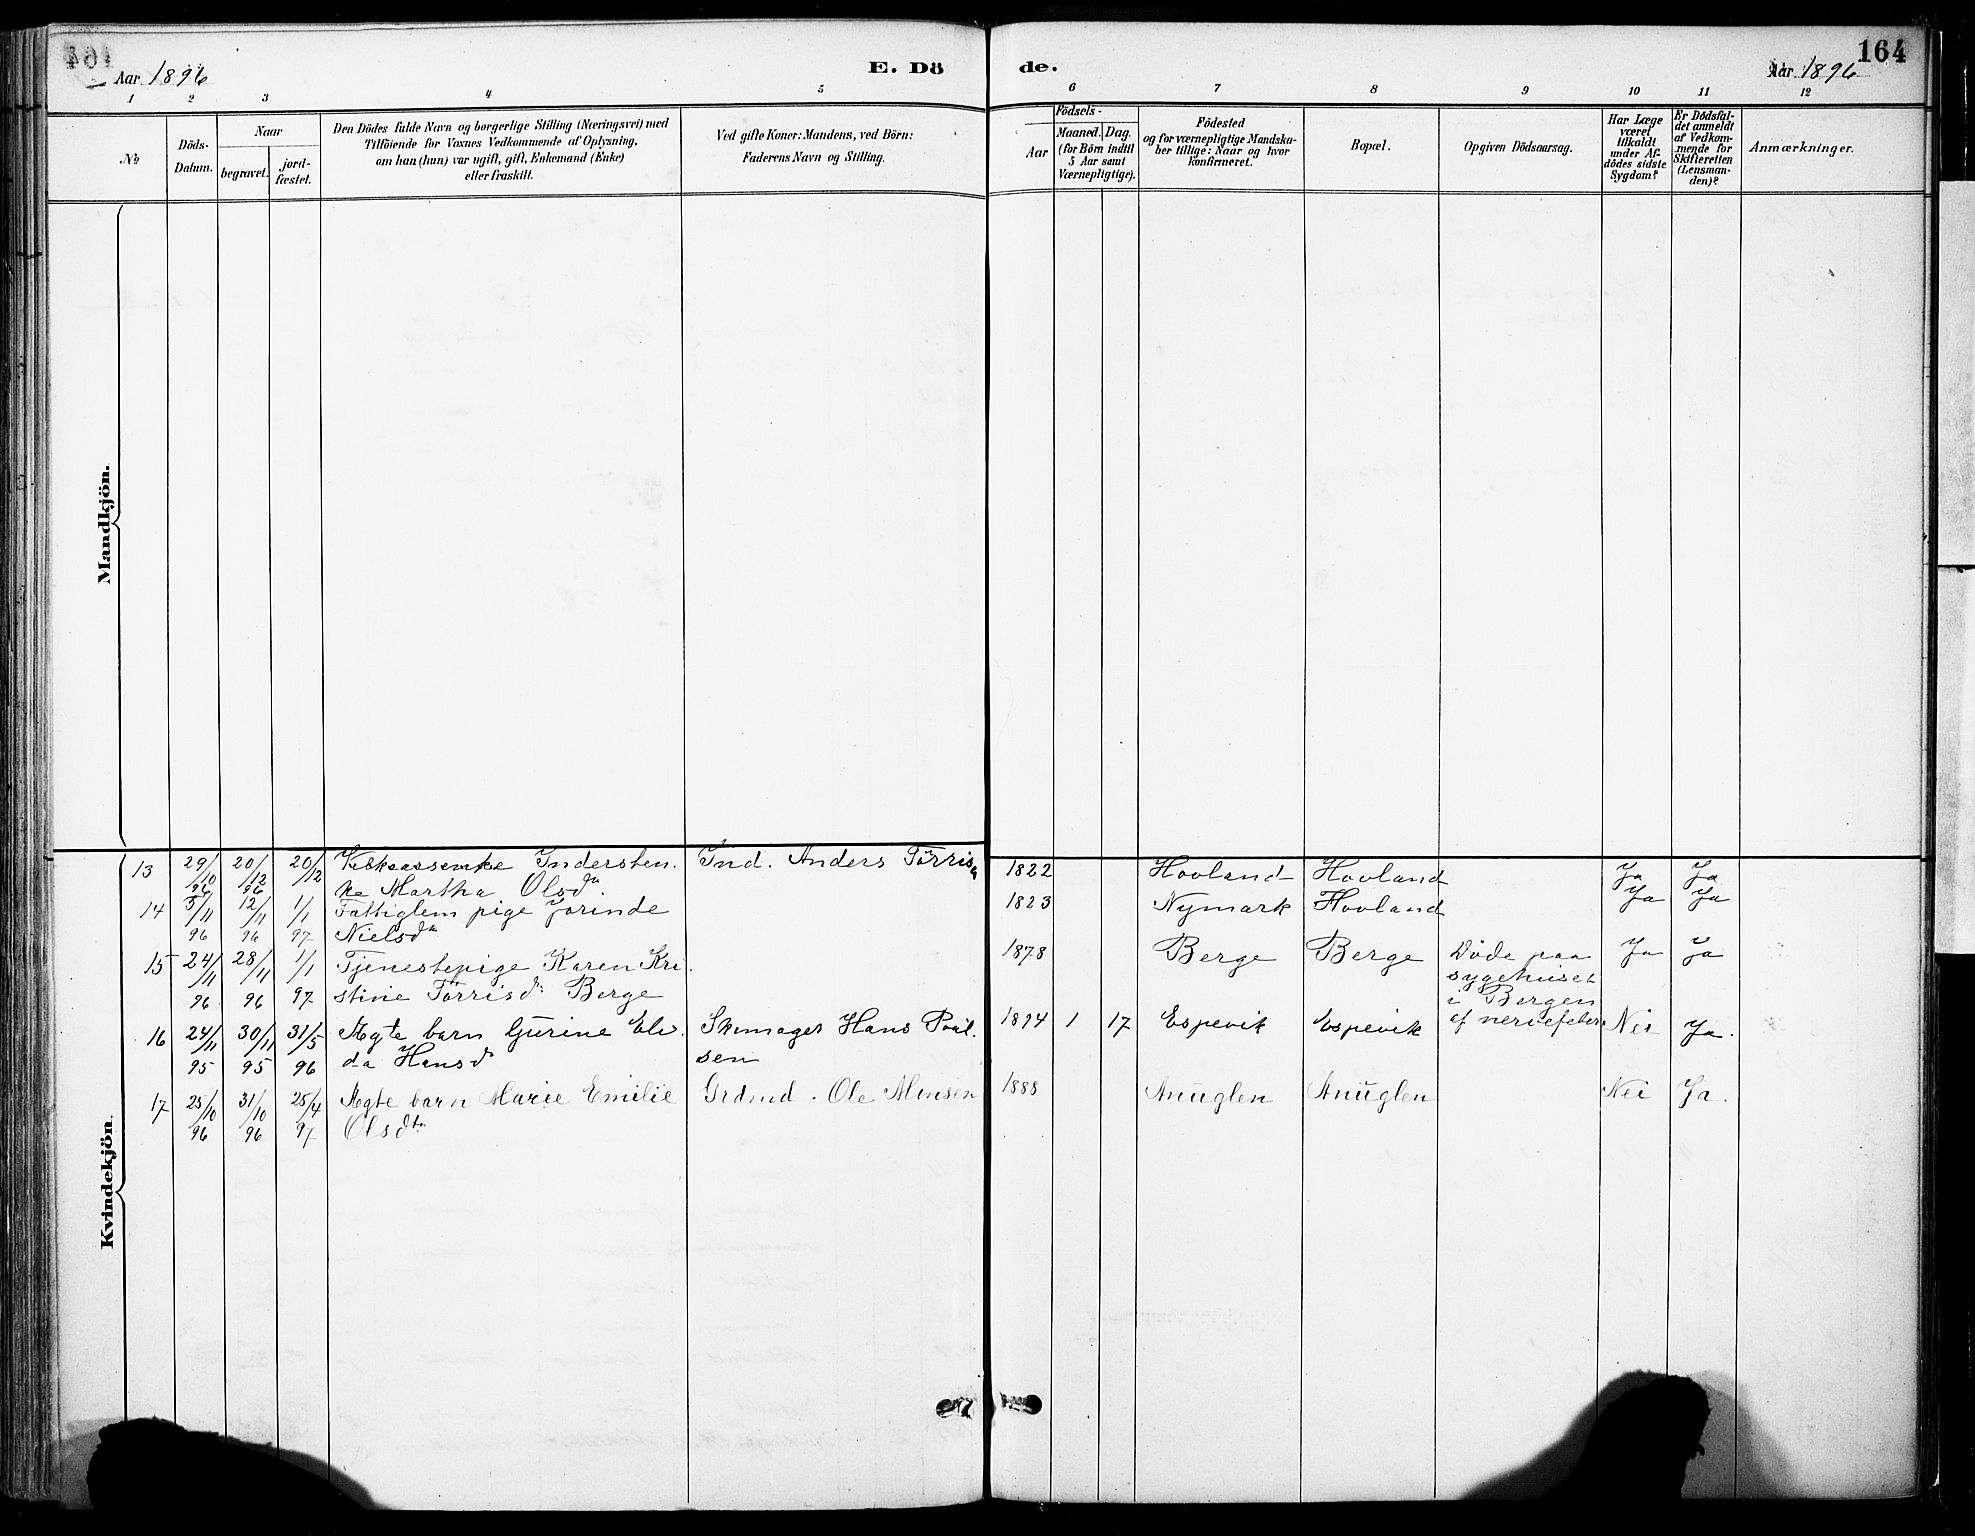 164
Aar 1896
E. Dö
de.
Aar 1896
1 2 3 4 5 6 7 8 9 10 11 12
No
Döds-
Datum.
Naar
begravet.
jord-
fæstet.
Den Dödes fulde Navn og borgerlige Stilling (Næringsvei) med
Tilföiende for Voxnes Vedkommende af Oplysning,
om han (hun) var ugift, gift, Enkemand (Enke)
eller fraskilt.
Ved gifte Koner: Mandens, ved Börn:
Faderens Navn og Stilling.
Födsels-
Aar
Maaned. Dag.
(for Börn indtil
5 Aar samt
Værnepligtige).
Födested
og for værnepligtige Mandska-
ber tillige: Naar og hvor
konfirmeret.
Bopæl.
Opgiven Dödsaarsag.
Har Læge
været
tilkaldt
under Af-
dödes sidste
Sygdom?
Er Dödsfal-
det anmeldt
af Vedkom-
mende for
Skifteretten
(Lensman-
den)?
Anmærkninger.
Mandkjön.
Kvindekjön.
13 29/10 96 20/12 96 20/12 Indersten. Ind. Anders Törris 1822 Hovland Hovland Ja Ja
ke Martha Olsdtr
14 5/11 96 12/11 96 1/1 97 Fattiglem pige Jorinde 1823 Nymark Hovland Ja Ja
Nielsdtr
15 24/11 96 28/11 96 1/1 97 Tjenestepige Karen Kri 1878 Berge Berge Døde paa Ja Ja
stine Törrisd: Berge sygehuset
i Bergen
af nervefeber
16 24/11 95 30/11 95 31/5 96 Ægte barn Gurine Eli Skomager Hans Poul 1894 1 17 Espevik Espevik Nei Ja.
da Hansd sen
17 25/10 96 31/10 96 25/4 97 Ægte barn Marie Emilie Grdmd. Ole Monsen 1888 Anuglen Anuglen Nei Ja.
Olsdtr